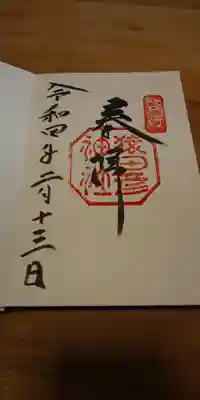 奉拝
猿田彦神社
令和四年二月十三日